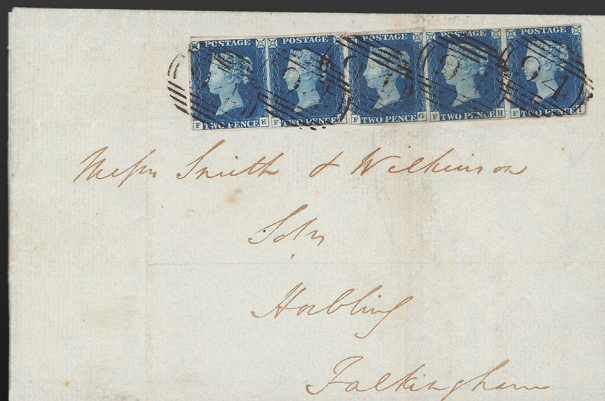 POSTAGE POSTAGE POSTAGE POSTAGE POSTAGE
F TWO PENCE E F TWO PENCE F F TWO PENCE G F TWO PENCE H F TWO PENCE I
Messrs Smith & Wilkinson
Solrs
Horbling
Falkingham